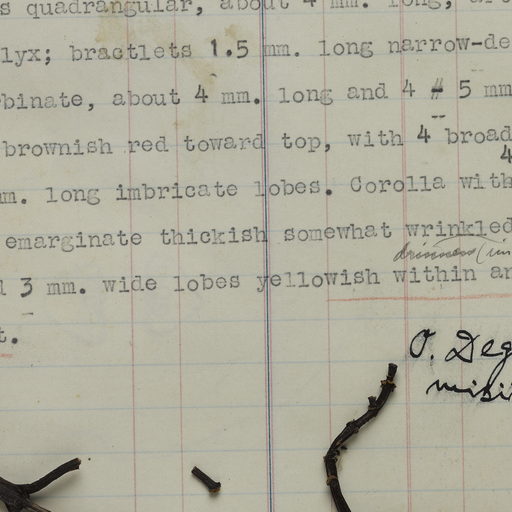 s quadrangular, about 4 mm. long,
lyx; bractlets 1.5 mm. long narrow-de
binate, about 4 mm. long and 4 - 5 mm
brownish red toward top, with 4 broad
4
mm. long imbricate lobes. Corolla with
emarginate thickish somewhat wrinkled
3 mm. wide lobes yellowish within an
t.
O. Deg